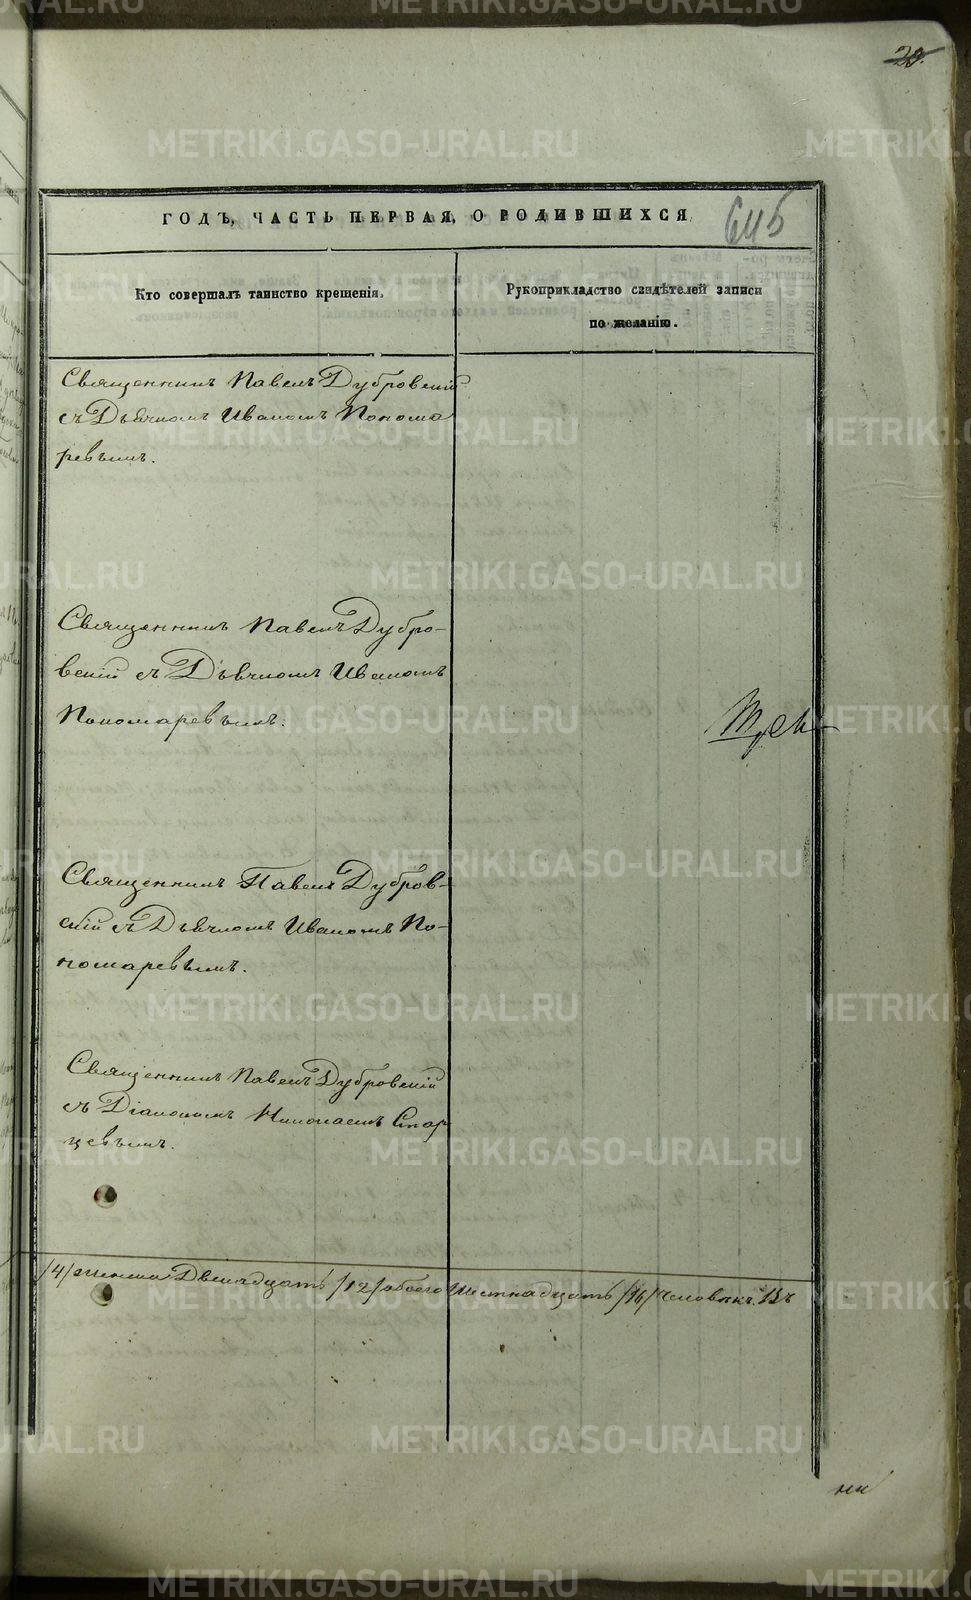 29.
ГОДЪ, ЧАСТЬ ПЕРВАЯ, О РОДИВШИХСЯ
645
Кто совершалъ таинство крещенія.
Рукоприкладство свидѣтелей записи
по желанію.
Священникъ Павелъ Дубровскій
съ Дьячкомъ Иваномъ Понома
ревымъ.
Священникъ Павелъ Дубро-
вскій съ Дьячкомъ Иваномъ
Пономаревымъ.
Священникъ Павелъ Дубров-
скій съ Дьячкомъ Иваномъ По-
номаревымъ.
Священникъ Павелъ Дубровскій
съ Діакономъ Николаемъ Стар
цевымъ.
/4/ женска Двенадцать /12/ обоего Шестнадцать /16/ Человѣкъ. Въ
METRIKI.GASO-URAL.RU